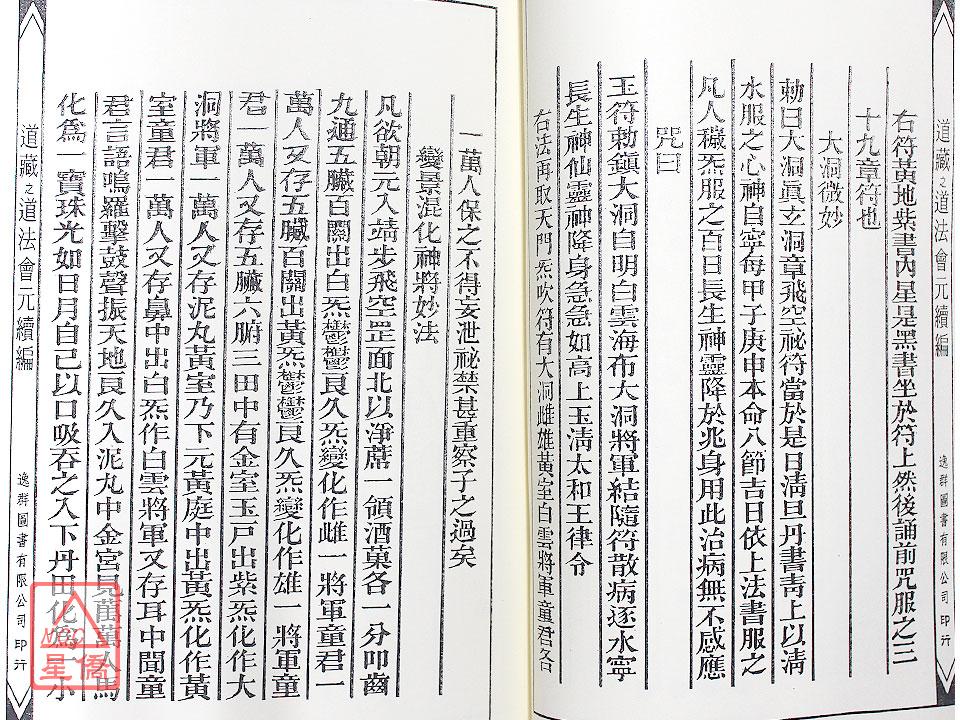 道藏之道法會元續編
逸群圖書有限公司 印行
右符黃地紫書內星是黑書坐於符上然後誦前咒服之三
十九章符也
大洞微妙
勅曰大洞眞玄洞章飛空祕符當於是日淸旦丹書靑上以淸
水服之心神自寧每甲子庚申本命八節吉日依上法書服之
凡人穢炁服之百日長生神靈降於兆身用此治病無不感應
咒曰
玉符勅鎭大洞自明白雲海布大洞將軍結隨符散病逐水寧
長生神仙靈神降身急急如高上玉淸太和王律令
右法再取天門炁吹符有大洞雌雄黃室白雲將軍童君各
一萬人保之不得妄泄祕禁甚重察子之過矣
變景混化神將妙法
凡欲朝元入靖步飛空罡面北以淨蓆一領酒菓各一分叩齒
九通五臟百關出白炁鬱鬱良久炁變化作雌一將軍童君一
萬人又存五臟百關出黃炁鬱鬱良久炁變化作雄一將軍童
君一萬人又存五臟六腑三田中有金室玉戸出紫炁化作大
洞將軍一萬人又存泥丸黃室乃下元黃庭中出黃炁化作黃
室童君一萬人又存鼻中出白炁作白雲將軍又存耳中聞童
君言語鳴羅擊鼓聲振天地良久入泥丸中金宮見萬萬人馬
化爲一寶珠光如日月自已以口吸吞之入下丹田化爲一小
道藏之道法會元續編
逸群圖書有限公司 印行
星僑